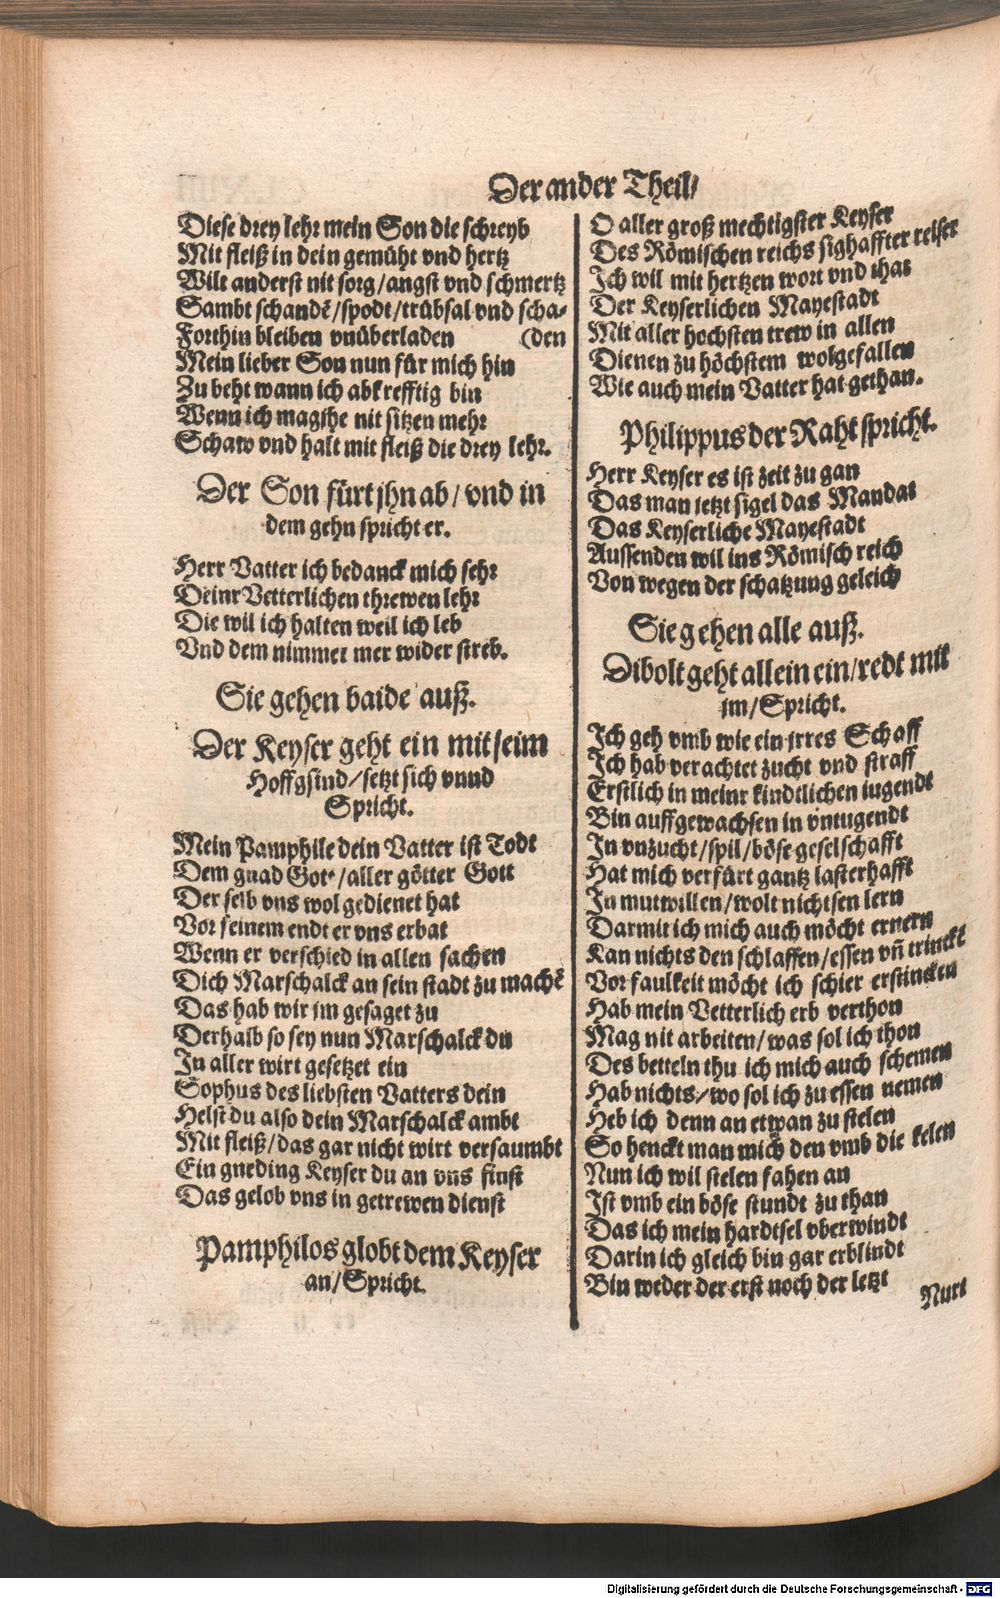 Der ander Theil/
Diese drey lehr mein Son die schreyb
Mit fleiß in dein gemüht vnd hertz
Wilt anderst nit sorg/angst vnd schmertz
Sambt schandē/spodt/trübsal vnd scha-
Forthin bleiben vnüberladen (den
Mein lieber Son nun für mich hin
Zu beht wann ich abkrefftig bin
Wenn ich mag jhe nit sitzen mehr
Schaw vnd halt mit fleiß die drey lehr.
Der Son fürt jhn ab/ vnd in
dem gehn spricht er.
Herr Vatter ich bedanck mich sehr
Deinr Vetterlichen threwen lehr
Die wil ich halten weil ich leb
Vnd dem nimmer mer wider streb.
Sie gehen baide auß.
Der Keyser geht ein mit seim
Hoffgsind/setzt sich vnnd
Spricht.
Mein Pamphile dein Vatter ist Todt
Dem gnad Got/aller götter Gott
Der selb vns wol gedienet hat
Vor seinem endt er vns erbat
Wenn er verschied in allen sachen
Dich Marschalck an sein stadt zu machē
Das hab wir jm gesaget zu
Derhalb so sey nun Marschalck du
In aller wirt gesetzet ein
Sophus des liebsten Vatters dein
Helst du also dein Marschalck ambt
Mit fleiß/das gar nicht wirt versaumbt
Ein gneding Keyser du an vns finst
Das gelob vns in getrewen dienst
Pamphilos globt dem Keyser
an/Spricht.
O aller groß mechtigster Keyser
Des Römischen reichs sighaffter reiser
Ich wil mit hertzen wort vnd that
Der Keyserlichen Mayestadt
Mit aller hochsten trew in allen
Dienen zu höchstem wolgefallen
Wie auch mein Vatter hat gethan.
Philippus der Raht spricht.
Herr Keyser es ist zeit zu gan
Das man jetzt sigel das Mandat
Das Keyserliche Mayestadt
Aussenden wil ins Römisch reich
Von wegen der schatzung geleich
Sie gehen alle auß.
Dibolt geht allein ein/redt mit
jm/Spricht.
Ich geh vmb wie ein jrres Schaff
Ich hab verachtet zucht vnd straff
Erstlich in meinr kindtlichen iugendt
Bin auffgewachsen in vntugendt
In vnzucht/spil/böse geselschafft
Hat mich verfürt gantz lasterhafft
In mutwillen/wolt nichtsen lern
Darmit ich mich auch möcht ernern
Kan nichts den schlaffen/essen vñ trinckē
Vor faulkeit möcht ich schier erstincken
Hab mein Vetterlich erb verthon
Mag nit arbeiten/was sol ich thon
Des betteln thu ich mich auch schemen
Hab nichts/wo sol ich zu essen nemen
Heb ich denn an etwan zu stelen
So henckt man mich den vmb die kelen
Nun ich wil stelen fahen an
Ist vmb ein böse stundt zu than
Das ich mein hardtsel vberwindt
Darin ich gleich bin gar erblindt
Bin weder der erst noch der letzt
Nurt
Digitalisierung gefördert durch die Deutsche Forschungsgemeinschaft - DFG